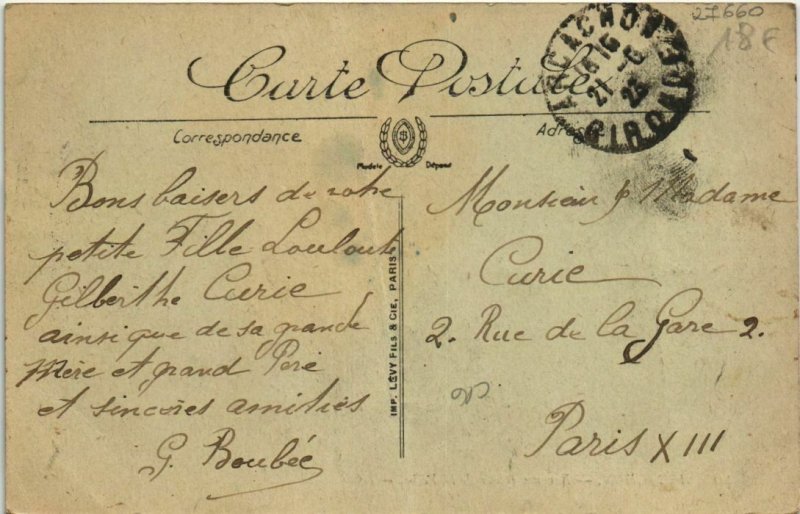 27660
18€
ARCACHON
GIRONDE
21
23
Carte Postale
Correspondance
Adresse
Modèle Déposé
Bons baisers de votre
petite Fille Louloute
Gilberthe Curie
ainsi que de sa grande
Mère et grand Père
et sincères amitiés
G. Boubée
IMP. LÉVY FILS & CIE, PARIS
Monsieur & Madame
Curie
2. Rue de la Gare 2.
Paris XIII